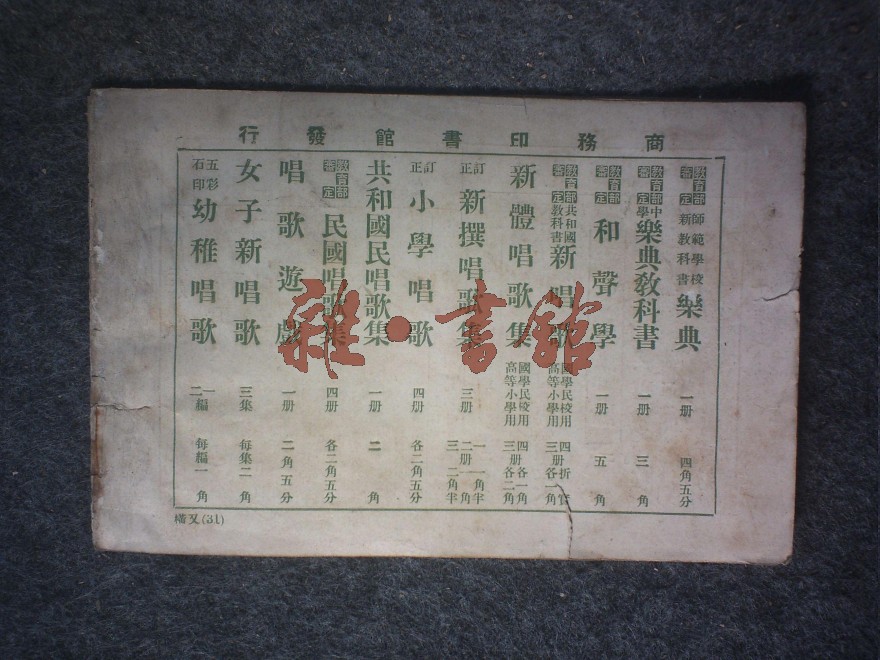 商務印書館發行
教育部審定 師範學校新教科書 樂典 一册 四角五分
教育部審定 中學 樂典教科書 一册 三角
教育部審定 和聲學 一册 五角
教育部審定 共和國教科書 新唱歌 國民學校用 四册 高等小學用 三册各一角
新體唱歌集 國民學校用 四册各一角 高等小學用 三册各二角
訂正 新撰唱歌集 三册 一 一角半 二册 一角 三 二角半
訂正 小學唱歌 四册 各二角五分
共和國民唱歌集 一册 二角
教育部審定 民國唱歌集 四册 各二角五分
唱歌遊戲 一册 二角五分
女子新唱歌 三集 每集二角
五彩石印 幼稚唱歌 一二編 每編一角
又(31)
雜·書館